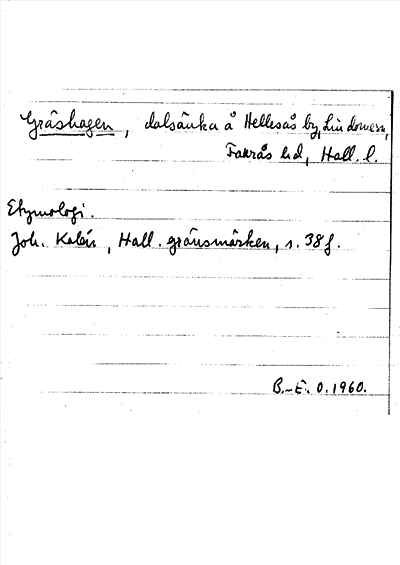 Gråshagen, dalsänka å Hellesås by, Lindomesn,
Fakrås hd, Hall. l.
Etymologi.
Joh. Kalén, Hall. gränsmärken, s. 38 f.
B.-E. O. 1960.